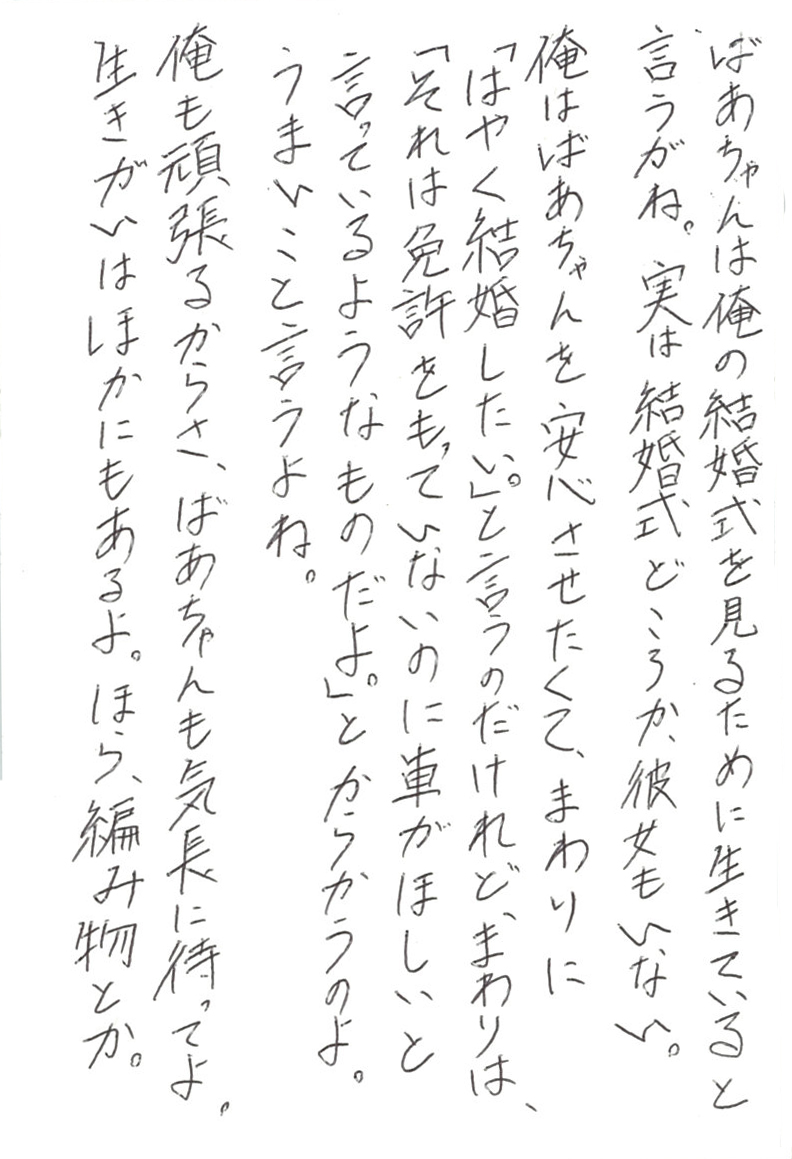 ばあちゃんは俺の結婚式を見るために生きていると
言うがね。実は結婚式どころか、彼女もいない。
俺はばあちゃんを安心させたくて、まわりに
「はやく結婚したい。」と言うのだけれど、まわりは、
「それは免許をもっていないのに車がほしいと
言っているようなものだよ。」とからかうのよ。
うまいこと言うよね。
俺も頑張るからさ、ばあちゃんも気長に待ってよ。
生きがいはほかにもあるよ。ほら、編み物とか。